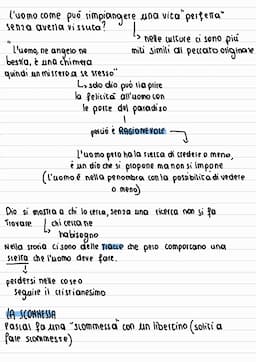 L'uomo come può rimpiangere una vita "perfetta"
senza averla vissuta?
↳ nelle culture ci sono più
miti simili al peccato originale
"L'uomo, ne angelo ne
bestia, è una chimera
quindi un mistero a se stesso"
↳ solo dio può riaprire
la felicità all'uomo con
le porte del paradiso
↓
perciò è RAGIONEVOLE
L'uomo però ha la scelta di credere o meno,
è un dio che si propone ma non si impone
(l'uomo è nella penombra con la possibilità di vedere
o meno)
Dio si mostra a chi lo cerca, senza una ricerca non si fa
trovare ↳ chi cerca ne
ha bisogno
Nella storia ci sono delle tracce che però comportano una
scelta che l'uomo deve fare.
↓
perdersi nelle cose o
seguire il cristianesimo
LA SCOMMESSA
Pascal fa una "scommessa" con un libertino (soliti a
fare scommesse)